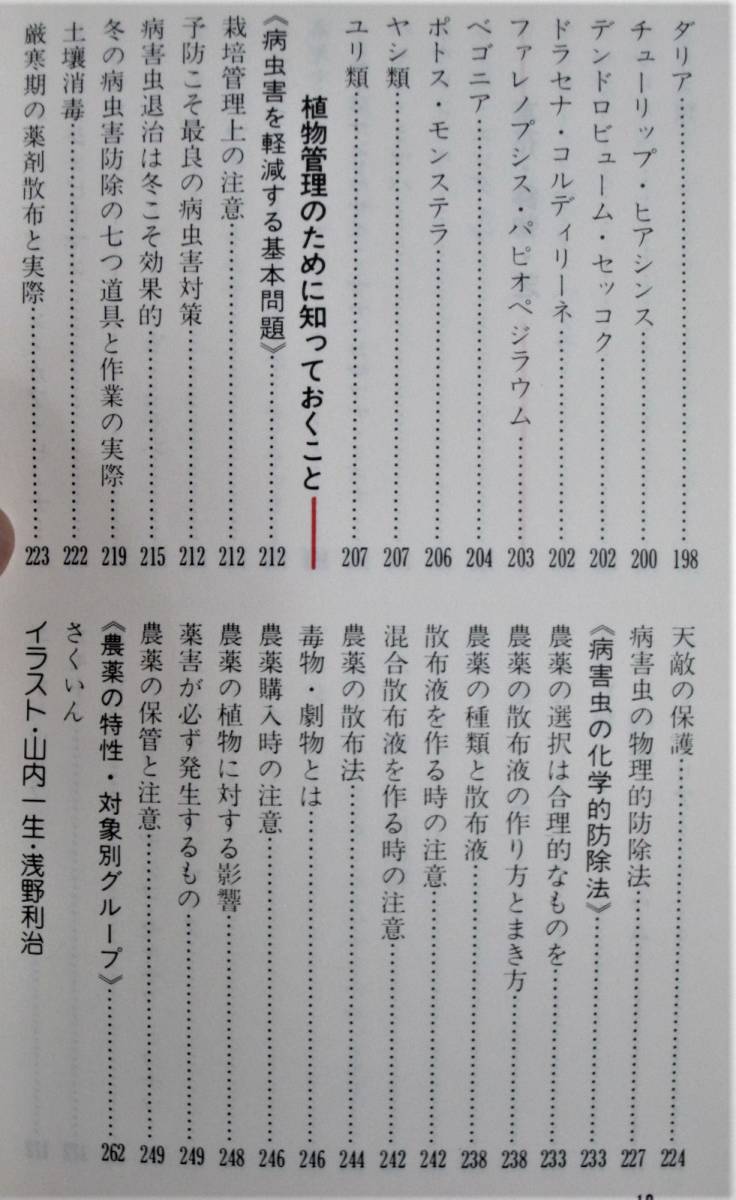 ダリア…………198
チューリップ・ヒアシンス…………200
デンドロビューム・セッコク…………202
ドラセナ・コルディリーネ…………202
ファレノプシス・パピオペジラウム…………203
ベゴニア…………204
ポトス・モンステラ…………206
ヤシ類…………207
ユリ類…………207
植物管理のために知っておくこと
《病虫害を軽減する基本問題》…………212
栽培管理上の注意…………212
予防こそ最良の病虫害対策…………212
病害虫退治は冬こそ効果的…………215
冬の病虫害防除の七つ道具と作業の実際…………219
土壌消毒…………222
厳寒期の薬剤散布と実際…………223
天敵の保護…………224
病害虫の物理的防除法…………227
《病害虫の化学的防除法》…………233
農薬の選択は合理的なものを…………233
農薬の散布液の作り方とまき方…………238
農薬の種類と散布液…………238
散布液を作る時の注意…………242
混合散布液を作る時の注意…………242
農薬の散布法…………244
毒物・劇物とは…………246
農薬購入時の注意…………246
農薬の植物に対する影響…………248
薬害が必ず発生するもの…………249
農薬の保管と注意…………249
《農薬の特性・対象別グループ》…………262
さくいん
イラスト・山内一生・浅野利治